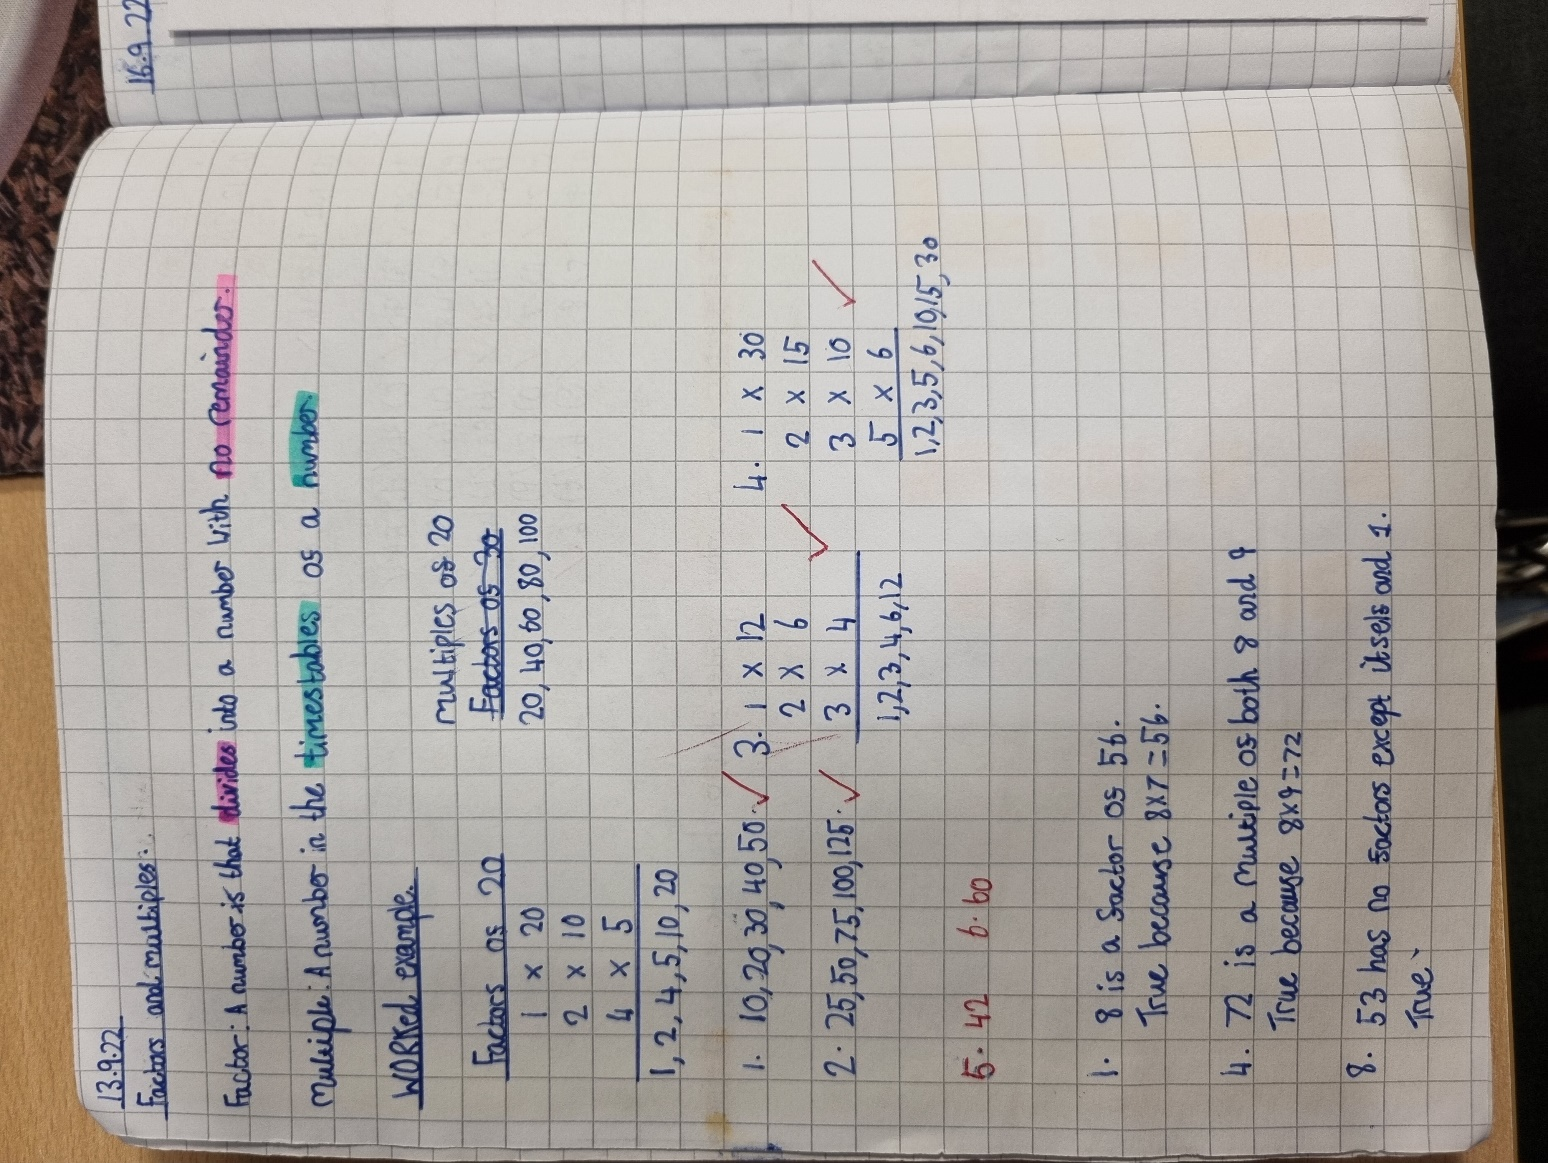 16.9.22
13.9.22
Factors and multiples:
Factor: A number is that divides into a number with no remainder.
Multiple: A number in the timestables of a number.
Worked example.
Factors of 20
1 x 20
2 x 10
4 x 5
1, 2, 4, 5, 10, 20
Multiples of 20
Factors of 30
20, 40, 60, 80, 100
1. 10, 20, 30, 40, 50.
2. 25, 50, 75, 100, 125.
3. 1 x 12
2 x 6
3 x 4
1, 2, 3, 4, 6, 12
4. 1 x 30
2 x 15
3 x 10
5 x 6
1, 2, 3, 5, 6, 10, 15, 30
5. 42 6. 60
1. 8 is a factor of 56.
True because 8x7=56.
4. 72 is a multiple of both 8 and 9
True because 8x9=72
8. 53 has no factors except itself and 1.
True.